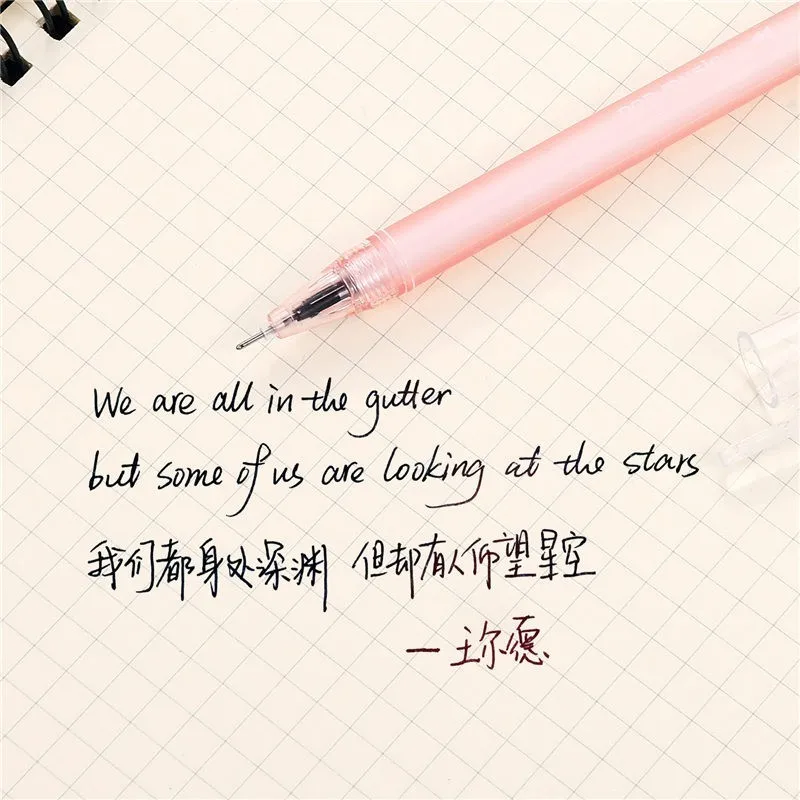 We are all in the gutter
but some of us are looking at the stars
我们都身处深渊 但却有人仰望星空
—王尔德